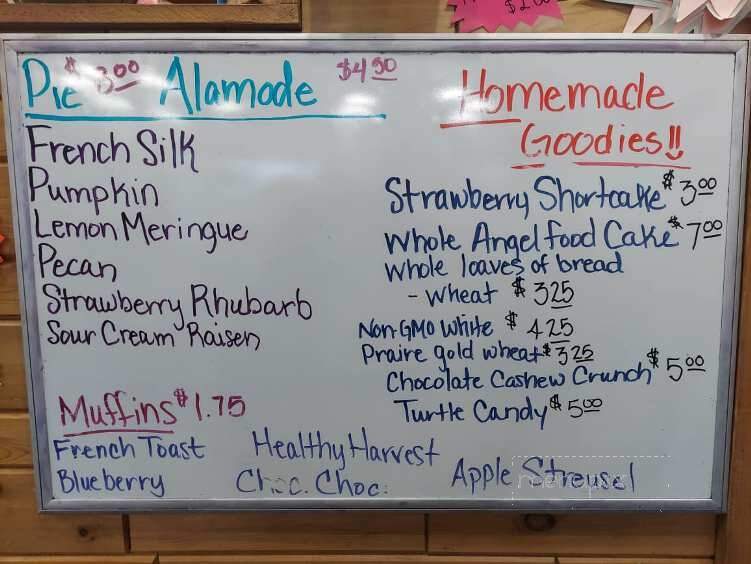 $1.00
Pie $3.00 Alamode $4.50
French Silk
Pumpkin
Lemon Meringue
Pecan
Strawberry Rhubarb
Sour Cream Raisen
Homemade
Goodies!!
Strawberry Shortcake $3.00
Whole Angel food Cake $7.00
whole loaves of bread
- wheat $3.25
Non-GMO White $4.25
Praire gold wheat $3.25
Chocolate Cashew Crunch $5.00
Turtle Candy $5.00
Muffins $1.75
French Toast Healthy Harvest
Blueberry Choc. Choc. Apple Streusel